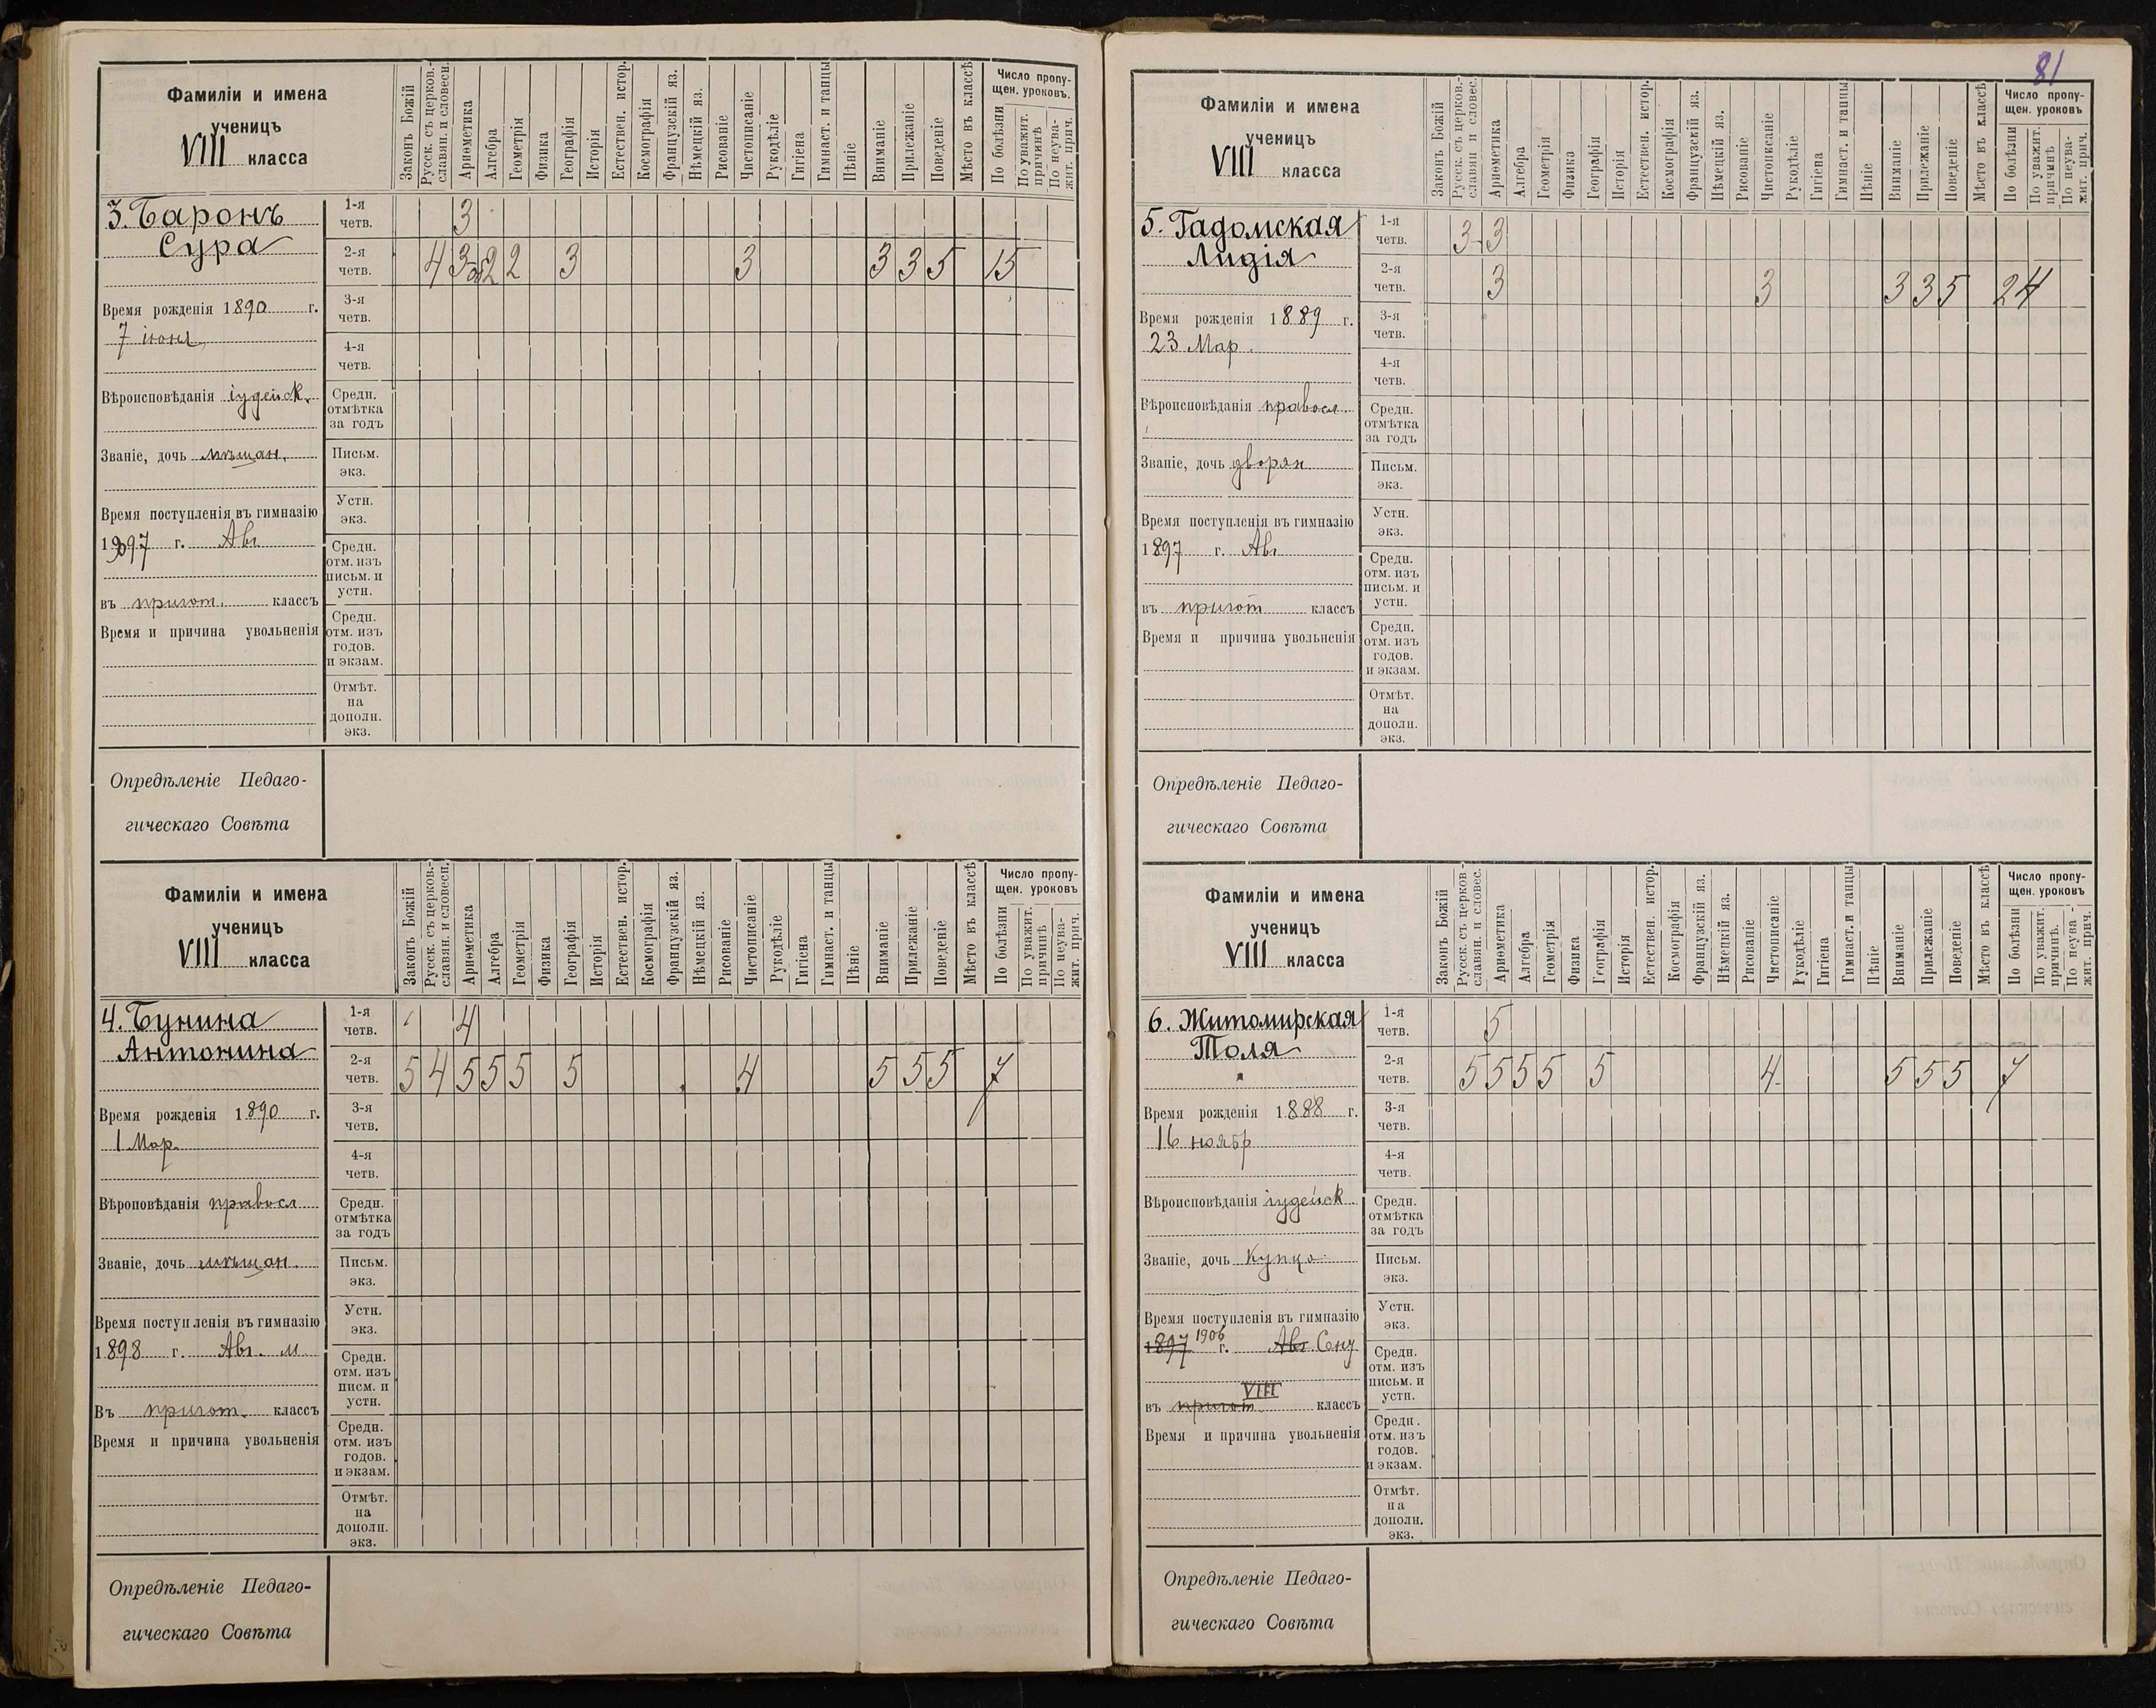 81
Фамиліи и имена
ученицъ
VIII класса
Законъ Божій
Русск. съ церков.-
славян. и словесн.
Ариѳметика
Алгебра
Геометрія
Физика
Географія
Исторія
Естествен. истор.
Космографія
Французскій яз.
Нѣмецкій яз.
Рисованіе
Чистописаніе
Рукодѣліе
Гигіена
Гимнаст. и танцы
Пѣніе
Вниманіе
Прилежаніе
Поведеніе
Мѣсто въ классѣ
Число пропу-
щен. уроковъ.
По болѣзни
По уважит.
причинѣ
По неува-
жит. прич.
3. Баронъ
Сура
1-я
четв. 3
2-я
четв. 4 3 2 2 3 3 3 3 5 15
3-я
четв.
4-я
четв.
Время рожденія 1890 г.
7 іюня
Вѣроисповѣданія іудейск.
Средн.
отмѣтка
за годъ
Званіе, дочь мѣщан.
Письм.
экз.
Время поступленія въ гимназію
1897 г. Авг
Устн.
экз.
Средн.
отм. изъ
письм. и
устн.
въ пригот. классъ
Время и причина увольненія
Средн.
отм. изъ
годов.
и экзам.
Отмѣт.
на
дополн.
экз.
Опредѣленіе Педаго-
гическаго Совѣта
Фамиліи и имена
ученицъ
VIII класса
Законъ Божій
Русск. съ церков.-
славян. и словесн.
Ариѳметика
Алгебра
Геометрія
Физика
Географія
Исторія
Естествен. истор.
Космографія
Французскій яз.
Нѣмецкій яз.
Рисованіе
Чистописаніе
Рукодѣліе
Гигіена
Гимнаст. и танцы
Пѣніе
Вниманіе
Прилежаніе
Поведеніе
Мѣсто въ классѣ
Число пропу-
щен. уроковъ
По болѣзни
По уважит.
причинѣ
По неува-
жит. прич.
4. Бунина
Антонина
1-я
четв. 4
2-я
четв. 5 4 5 5 5 5 4 5 5 5 7
3-я
четв.
4-я
четв.
Время рожденія 1890 г.
1 Мар.
Вѣроповѣданія правосл
Средн.
отмѣтка
за годъ
Званіе, дочь мѣщан.
Письм.
экз.
Время поступленія въ гимназію
1898 г. Авг. м.
Устн.
экз.
Средн.
отм. изъ
писм. и
устн.
Въ пригот. классъ
Время и причина увольненія
Средн.
отм. изъ
годов.
и экзам.
Отмѣт.
на
дополн.
экз.
Опредѣленіе Педаго-
гическаго Совѣта
Фамиліи и имена
ученицъ
VIII класса
Законъ Божій
Русск. съ церков.-
славян и словес.
Ариѳметика
Алгебра
Геометрія
Физика
Географія
Исторія
Естествен. истор.
Космографія
Французскій яз.
Нѣмецкій яз.
Рисованіе
Чистописаніе
Рукодѣліе
Гигіена
Гимнаст. и танцы
Пѣніе
Вниманіе
Прилежаніе
Поведеніе
Мѣсто въ классѣ
Число пропу-
щен. уроковъ
По болѣзни
По уважит.
причинѣ
По неува-
жит. прич.
5. Гадомская
Лидія
1-я
четв. 3 3
2-я
четв. 3 3 3 3 5 24
3-я
четв.
4-я
четв.
Время рожденія 1889 г.
23 Мар.
Вѣроисповѣданія правосл.
Средн.
отмѣтка
за годъ
Званіе, дочь дворян
Письм.
экз.
Время поступленія въ гимназію
1897 г. Авг
Устн.
экз.
Средн.
отм. изъ
письм. и
устн.
въ пригот классъ
Время и причина увольненія
Средн.
отм. изъ
годов.
и экзам.
Отмѣт.
на
дополн.
экз.
Опредѣленіе Педаго-
гическаго Совѣта
Фамиліи и имена
ученицъ
VIII класса
Законъ Божій
Русск. съ церков
славян. и словес.
Ариѳметика
Алгебра
Геометрія
Физика
Географія
Исторія
Естествен. истор.
Космографія
Французскій яз.
Нѣмецкій яз.
Рисованіе
Чистописаніе
Рукодѣліе
Гигіена
Гимнаст. и танцы
Пѣніе
Вниманіе
Прилежаніе
Поведеніе
Мѣсто въ классѣ
Число пропу-
щен. уроковъ
По болѣзни
По уважит.
причинѣ.
По неува-
жит. прич.
6. Житомирская
Толя
1-я
четв. 5
2-я
четв. 5 5 5 5 5 4 5 5 5 7
3-я
четв.
4-я
четв.
Время рожденія 1888 г.
16 ноябр
Вѣроисповѣданія іудейск
Средн.
отмѣтка
за годъ
Званіе, дочь Купца
Письм.
экз.
Время поступленія въ гимназію
1897 1906 г. Авг Сен
Устн.
экз.
Средн.
отм. изъ
письм. и
устн.
VIII
въ пригот классъ
Время и причина увольненія
Средн.
отм. изъ
годов.
и экзам.
Отмѣт.
на
дополн.
экз.
Опредѣленіе Педаго-
гическаго Совѣта